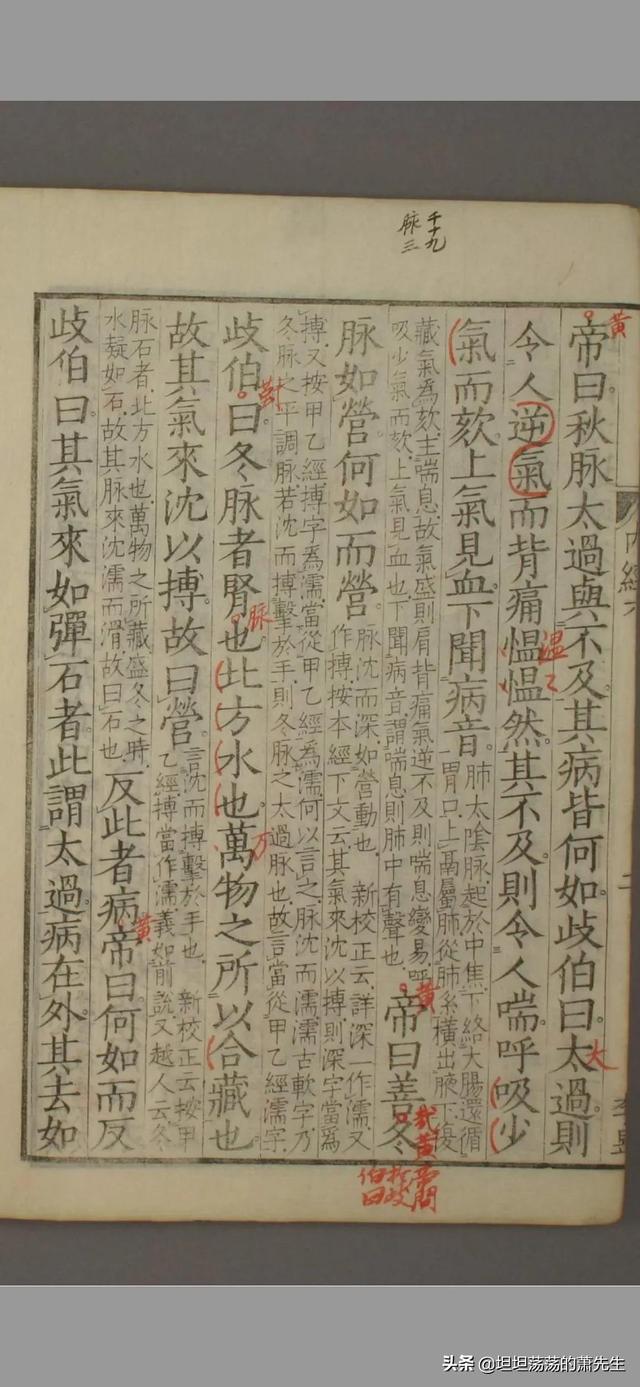 千十九
脉三
帝曰秋脉太過與不及其病皆何如歧伯曰太過則
令人逆氣而背痛慍慍然其不及則令人喘呼吸少
氣而欬上氣見血下聞病音
肺太陰脉起於中焦下絡大腸還循
胃只上鬲屬肺從肺系橫出腋下復
藏氣為欬主喘息故氣盛則肩背痛氣逆不及則喘息變易呼
吸少氣而欬上氣見血也下聞病音謂喘息則肺中有聲也
帝曰善冬
脉如營何如而營
脉沈而深如營動也 新校正云詳深一作濡又
作搏按本經下文云其氣來沈以搏則深字當為
搏又按甲乙經搏字為濡當從甲乙經為濡何以言之脉沈而濡濡古軟字乃
冬脉之平調脉若沈而搏擊於手則冬脉之太過脉也故言當從甲乙經濡字
歧伯曰冬脉者腎也北方水也萬物之所以合藏也
故其氣來沈以搏故曰營
言沈而搏擊於手也 新校正云按甲
乙經搏當作濡義如前說又越人云冬
脉石者北方水也萬物之所藏盛冬之時
水凝如石故其脉來沈濡而滑故曰石也
反此者病帝曰何如而反
歧伯曰其氣來如彈石者此謂太過病在外其去如
黃
温
大
黃
脉
方
黃
内經六
二
头条 @坦坦荡荡的萧先生